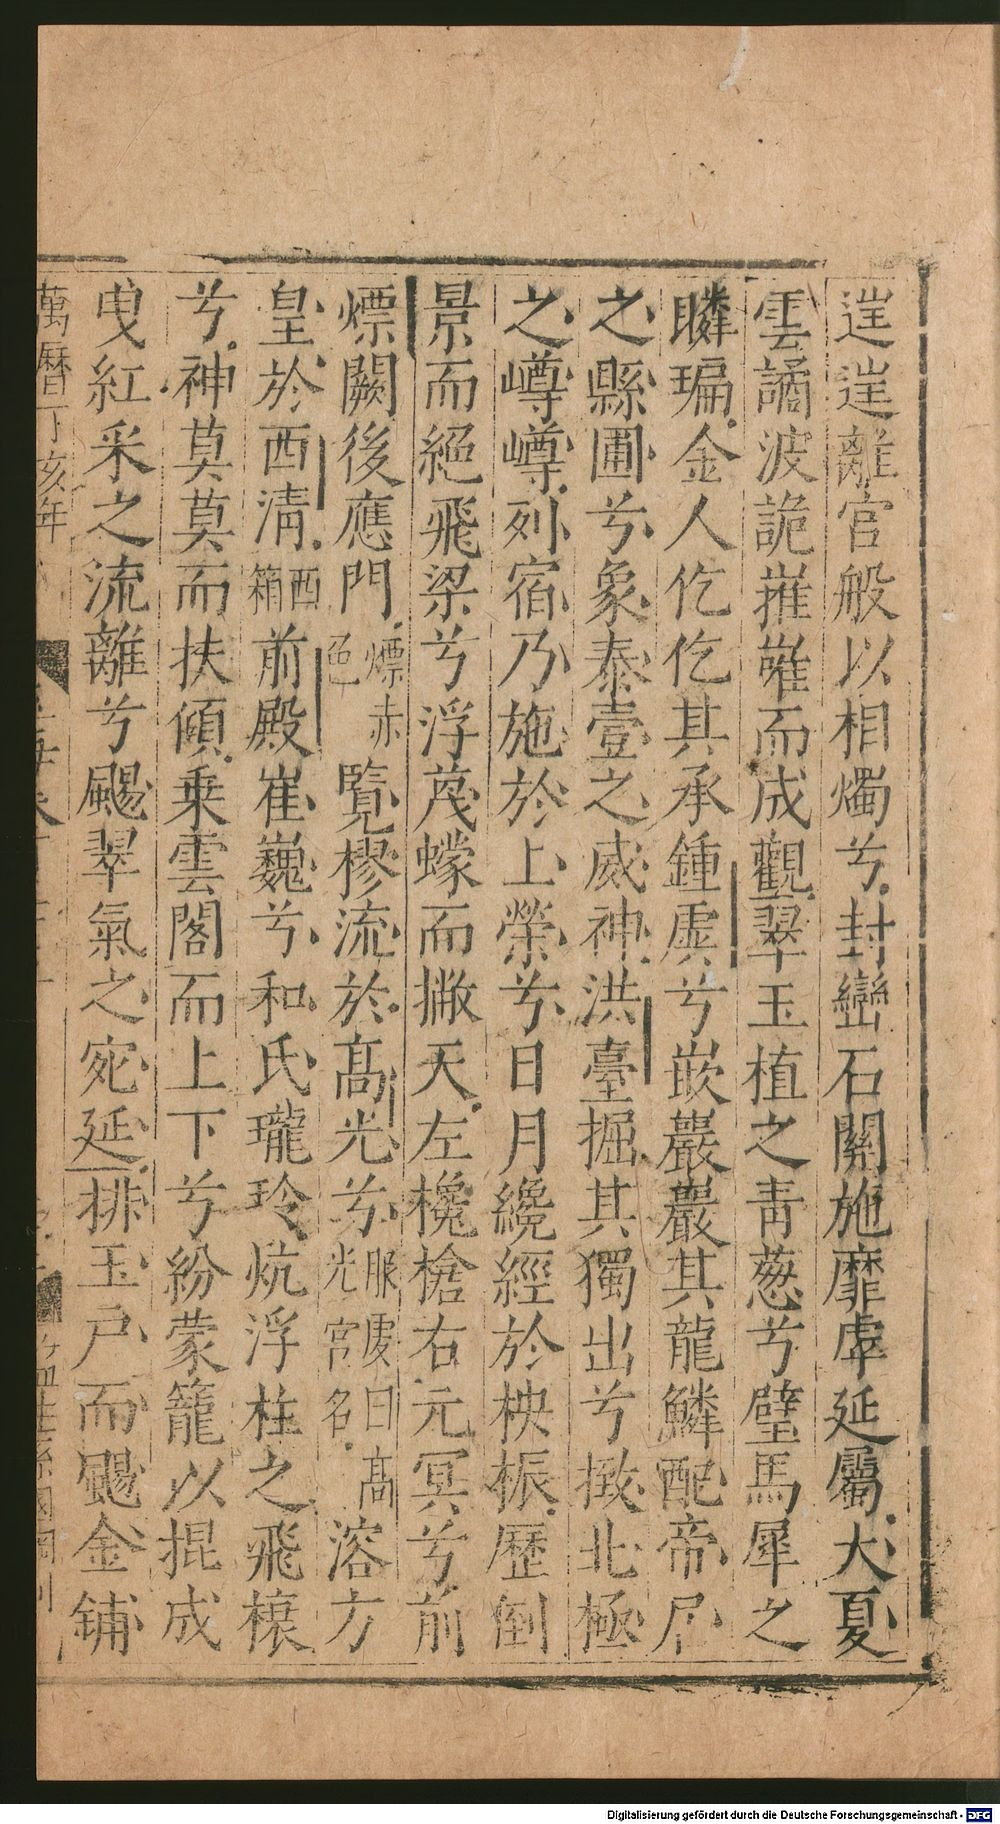 迋迋離宮般以相燭兮封巒石關施靡虖延屬大夏
雲譎波詭摧嶉而成觀翠玉植之青葱兮璧馬犀之
瞵㻞金人仡仡其承鍾虡兮嵌巖巖其龍鱗配帝凥
之縣圃兮象泰壹之威神洪臺掘其獨出兮㨖北極
之嶟嶟列宿乃施於上榮兮日月纔經於柍桭歷倒
景而絕飛梁兮浮蔑蠓而撇天左欃槍右元冥兮前
熛闕後應門熛赤色覽樛流於高光兮服虔曰高光宮名溶方
皇於西清西箱前殿崔巍兮和氏瓏玲炕浮柱之飛榱
兮神莫莫而扶傾乗雲閣而上下兮紛蒙籠以掍成
曳紅采之流離兮颺翠氣之宛延排玉戶而颺金鋪
萬曆丁亥年
Digitalisierung gefördert durch die Deutsche Forschungsgemeinschaft - DFG